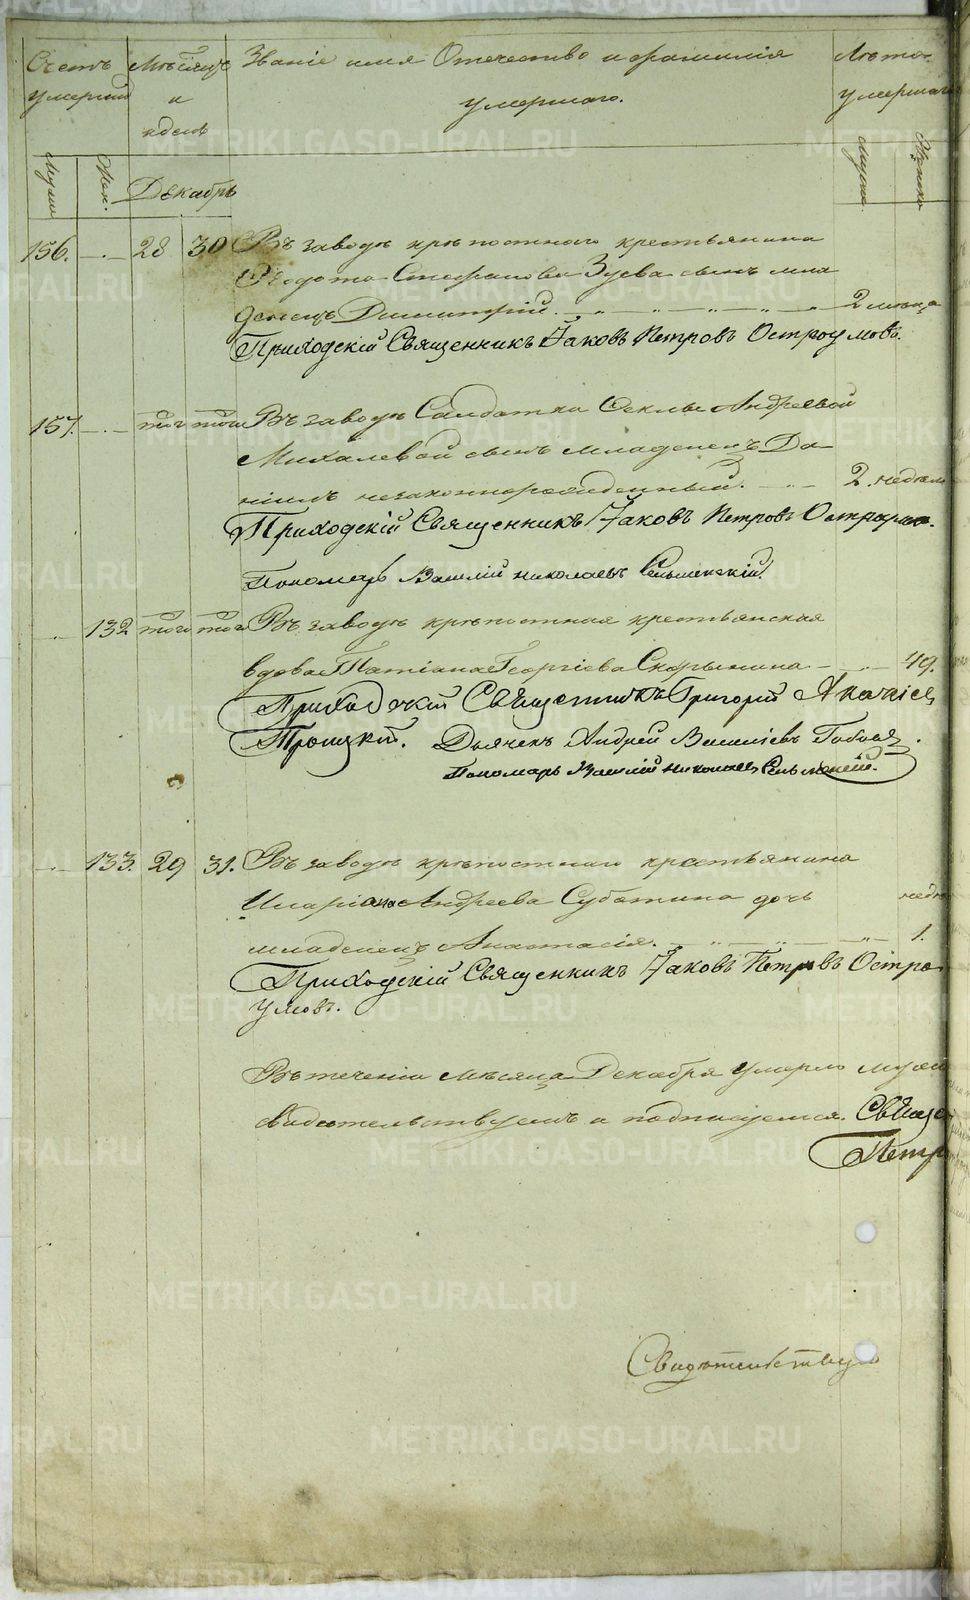 Счетъ умершихъ
Мѣсяцъ и день
Званіе имя Отечество и фамилія
умершаго.
Лѣта умершаго
Муж.
Жен.
Декабрь
Мужска
Женска
156. 28 30 Въ заводѣ крѣпостнаго крестьянина
Ѳедота Стефанова Зуева сынъ мла
денецъ Димитрій. 2 мѣсяца
Приходскій Священникъ Іаковъ Петровъ Остроумовъ.
157. того того Въ заводѣ Солдатки Ѳеклы Андреевой
Михалевой сынъ младенецъ Да
ніилъ незаконнорожденный. 2. недѣли
Приходскій Священникъ Іаковъ Петровъ
Пономарь Василій Николаевъ
132 того того Въ заводѣ крѣпостная крестьянская
вдова Татіана Георгіева Скорынина 49.
Приходскій Священникъ Григорій
Троицкій. Дьячекъ Андрей Василіевъ
Пономарь Василій Николаевъ
133. 29 31. Въ заводѣ крѣпостнаго крестьянина
Иларіона Андреева Субботина дочь недѣ
младенецъ Анастасія. 1.
Приходскій Священникъ Іаковъ Петровъ Остро
умовъ.
Въ теченіи мѣсяца Декабря умерло муж
свидѣтельствуемъ и подписуемся. Свяще
Петр
Свидѣтельствую
METRIKI.GASO-URAL.RU